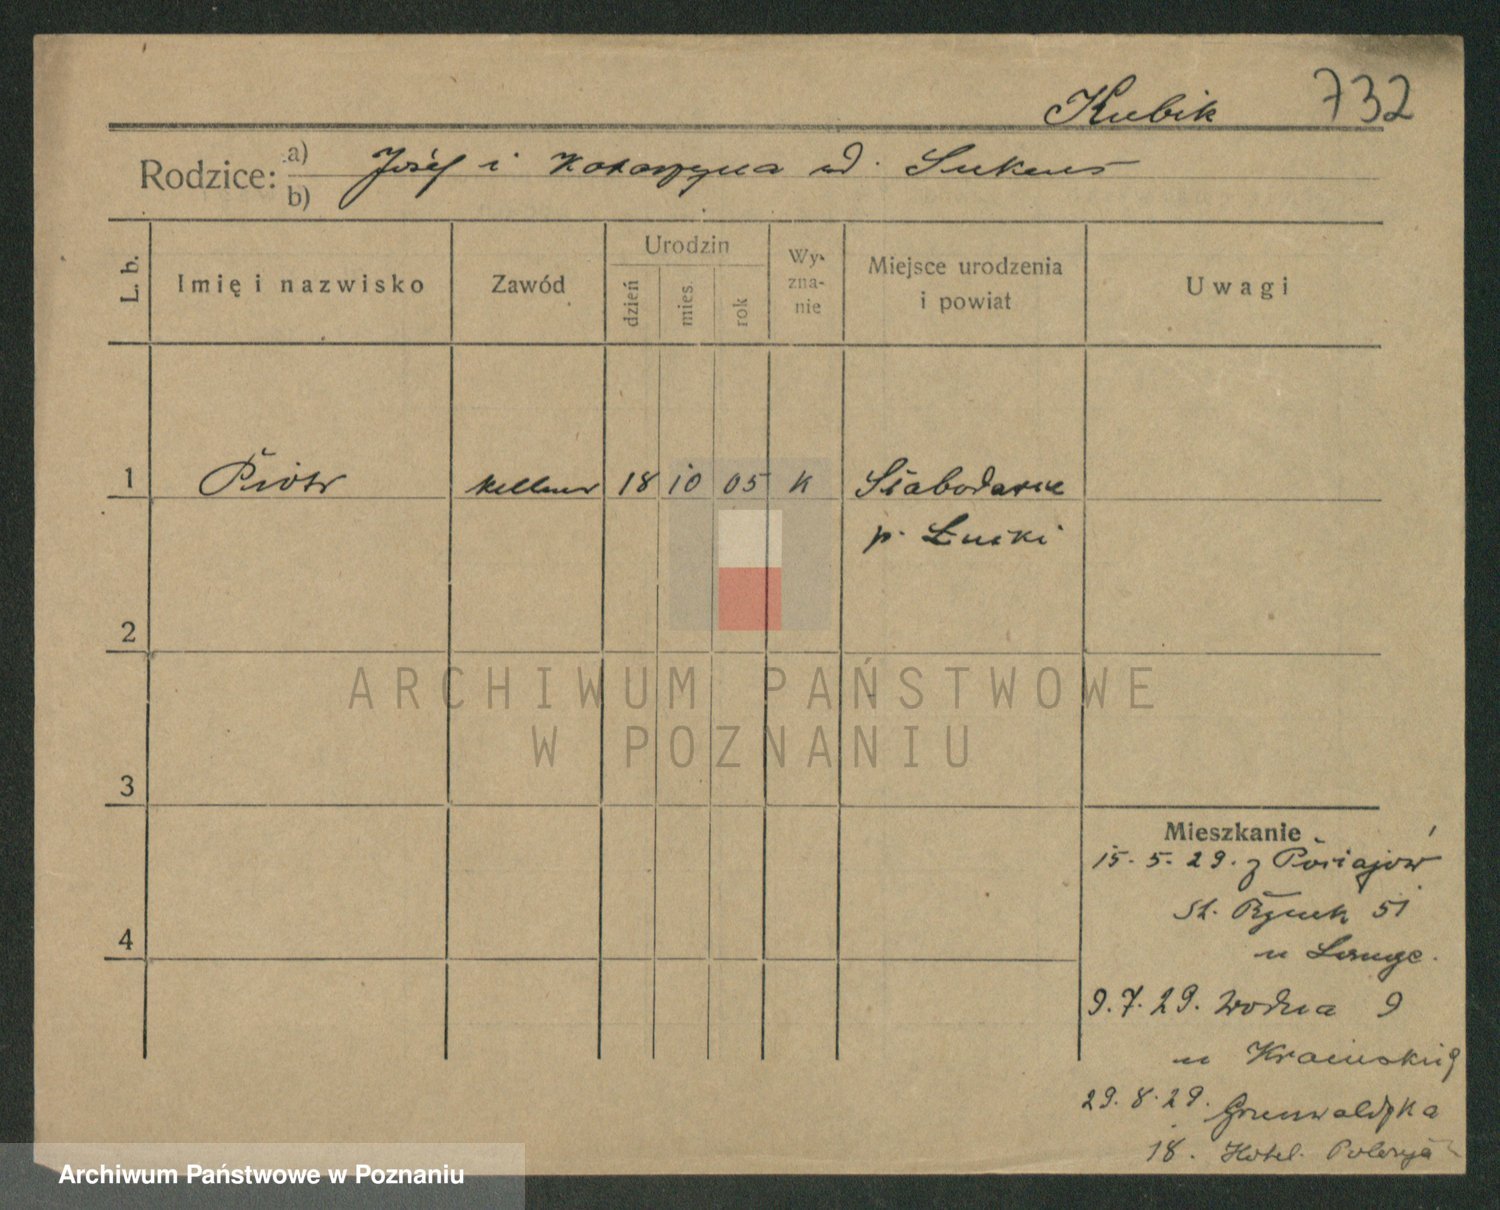 Kubik 732
Rodzice: a) Józef i Katarzyna ud.
b)
L. b. Imię i nazwisko Zawód Urodzin Wy-zna-nie Miejsce urodzenia i powiat Uwagi
dzień mies. rok
1 Piotr kellner 18 10 05 K
p. Łucki
2
ARCHIWUM PAŃSTWOWE
W POZNANIU
3
Mieszkanie
15. 5. 29. z
St. Rynek 51
u Lange.
4
9. 7. 29. Wodna 9
u
29. 8. 29. Grunwaldzka
18. Hotel Polonja
Archiwum Państwowe w Poznaniu